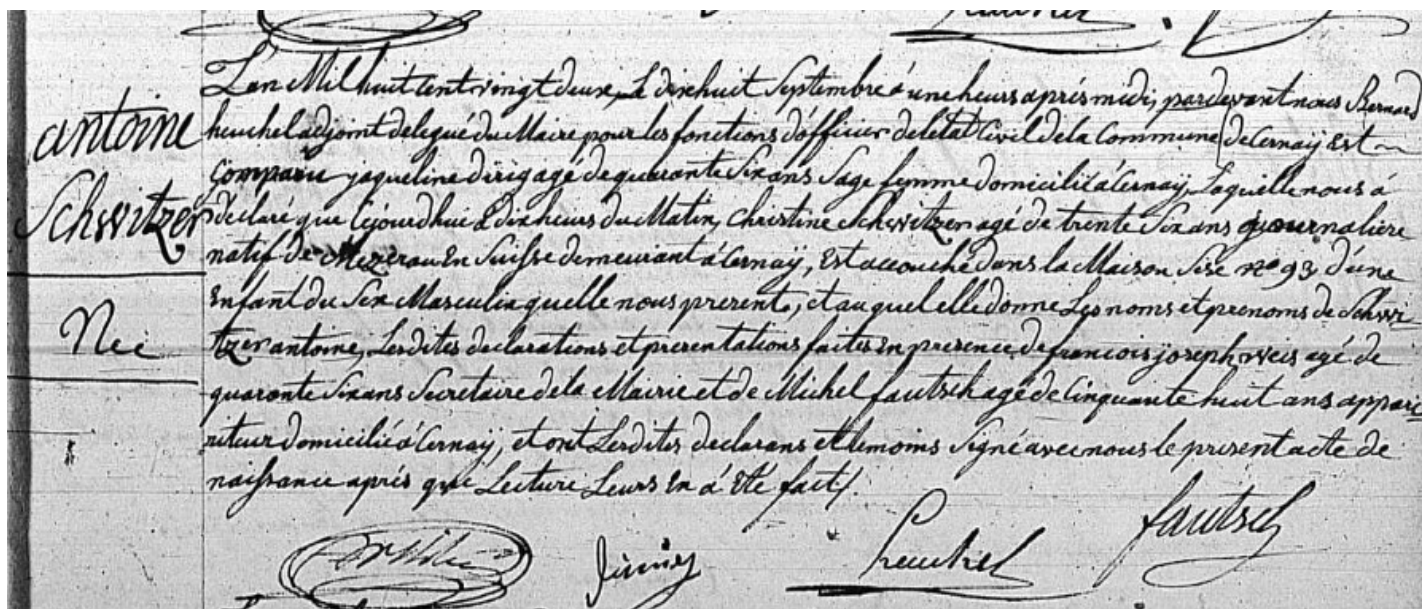 L'an Mil huit Cent vingt deux, Le dixhuit Septembre à une heurs après midi, pardevant nous Bernard
antoine
heuchel adjoint delegué du Maire pour les fonctions d'officier de letat Civil de la Commune de Cernaÿ Est
Comparu jaqueline dirig agé de quarante Six ans Sage femme domicilié à Cernaÿ, Laquelle nous à
Schwitzer
declaré que Cejourdhui à dix heurs du Matin, Christine Schwitzer agé de trente Six ans journaliere
natif de Mezerau En Suisse demeurant à Cernaÿ, Est accouché dans la Maison Sise nº 93, d'une
Enfant du Sex Masculin quelle nous present, et auquel elle donne Les noms et prenoms de Schwi-
Neé
tzer antoine, Lesdites declarations et presentations faites En presence de francois joseph weis agé de
quaronte Six ans Secretaire de la Mairie et de Michel fautsch agé de Cinquante huit ans appari
niteur domicilié à Cernaÿ, et ont Lesdites declarans et temoins Signé avec nous le present acte de
naissance après que Lecture Leurs En á Eté fait.
heuchel
fautsch